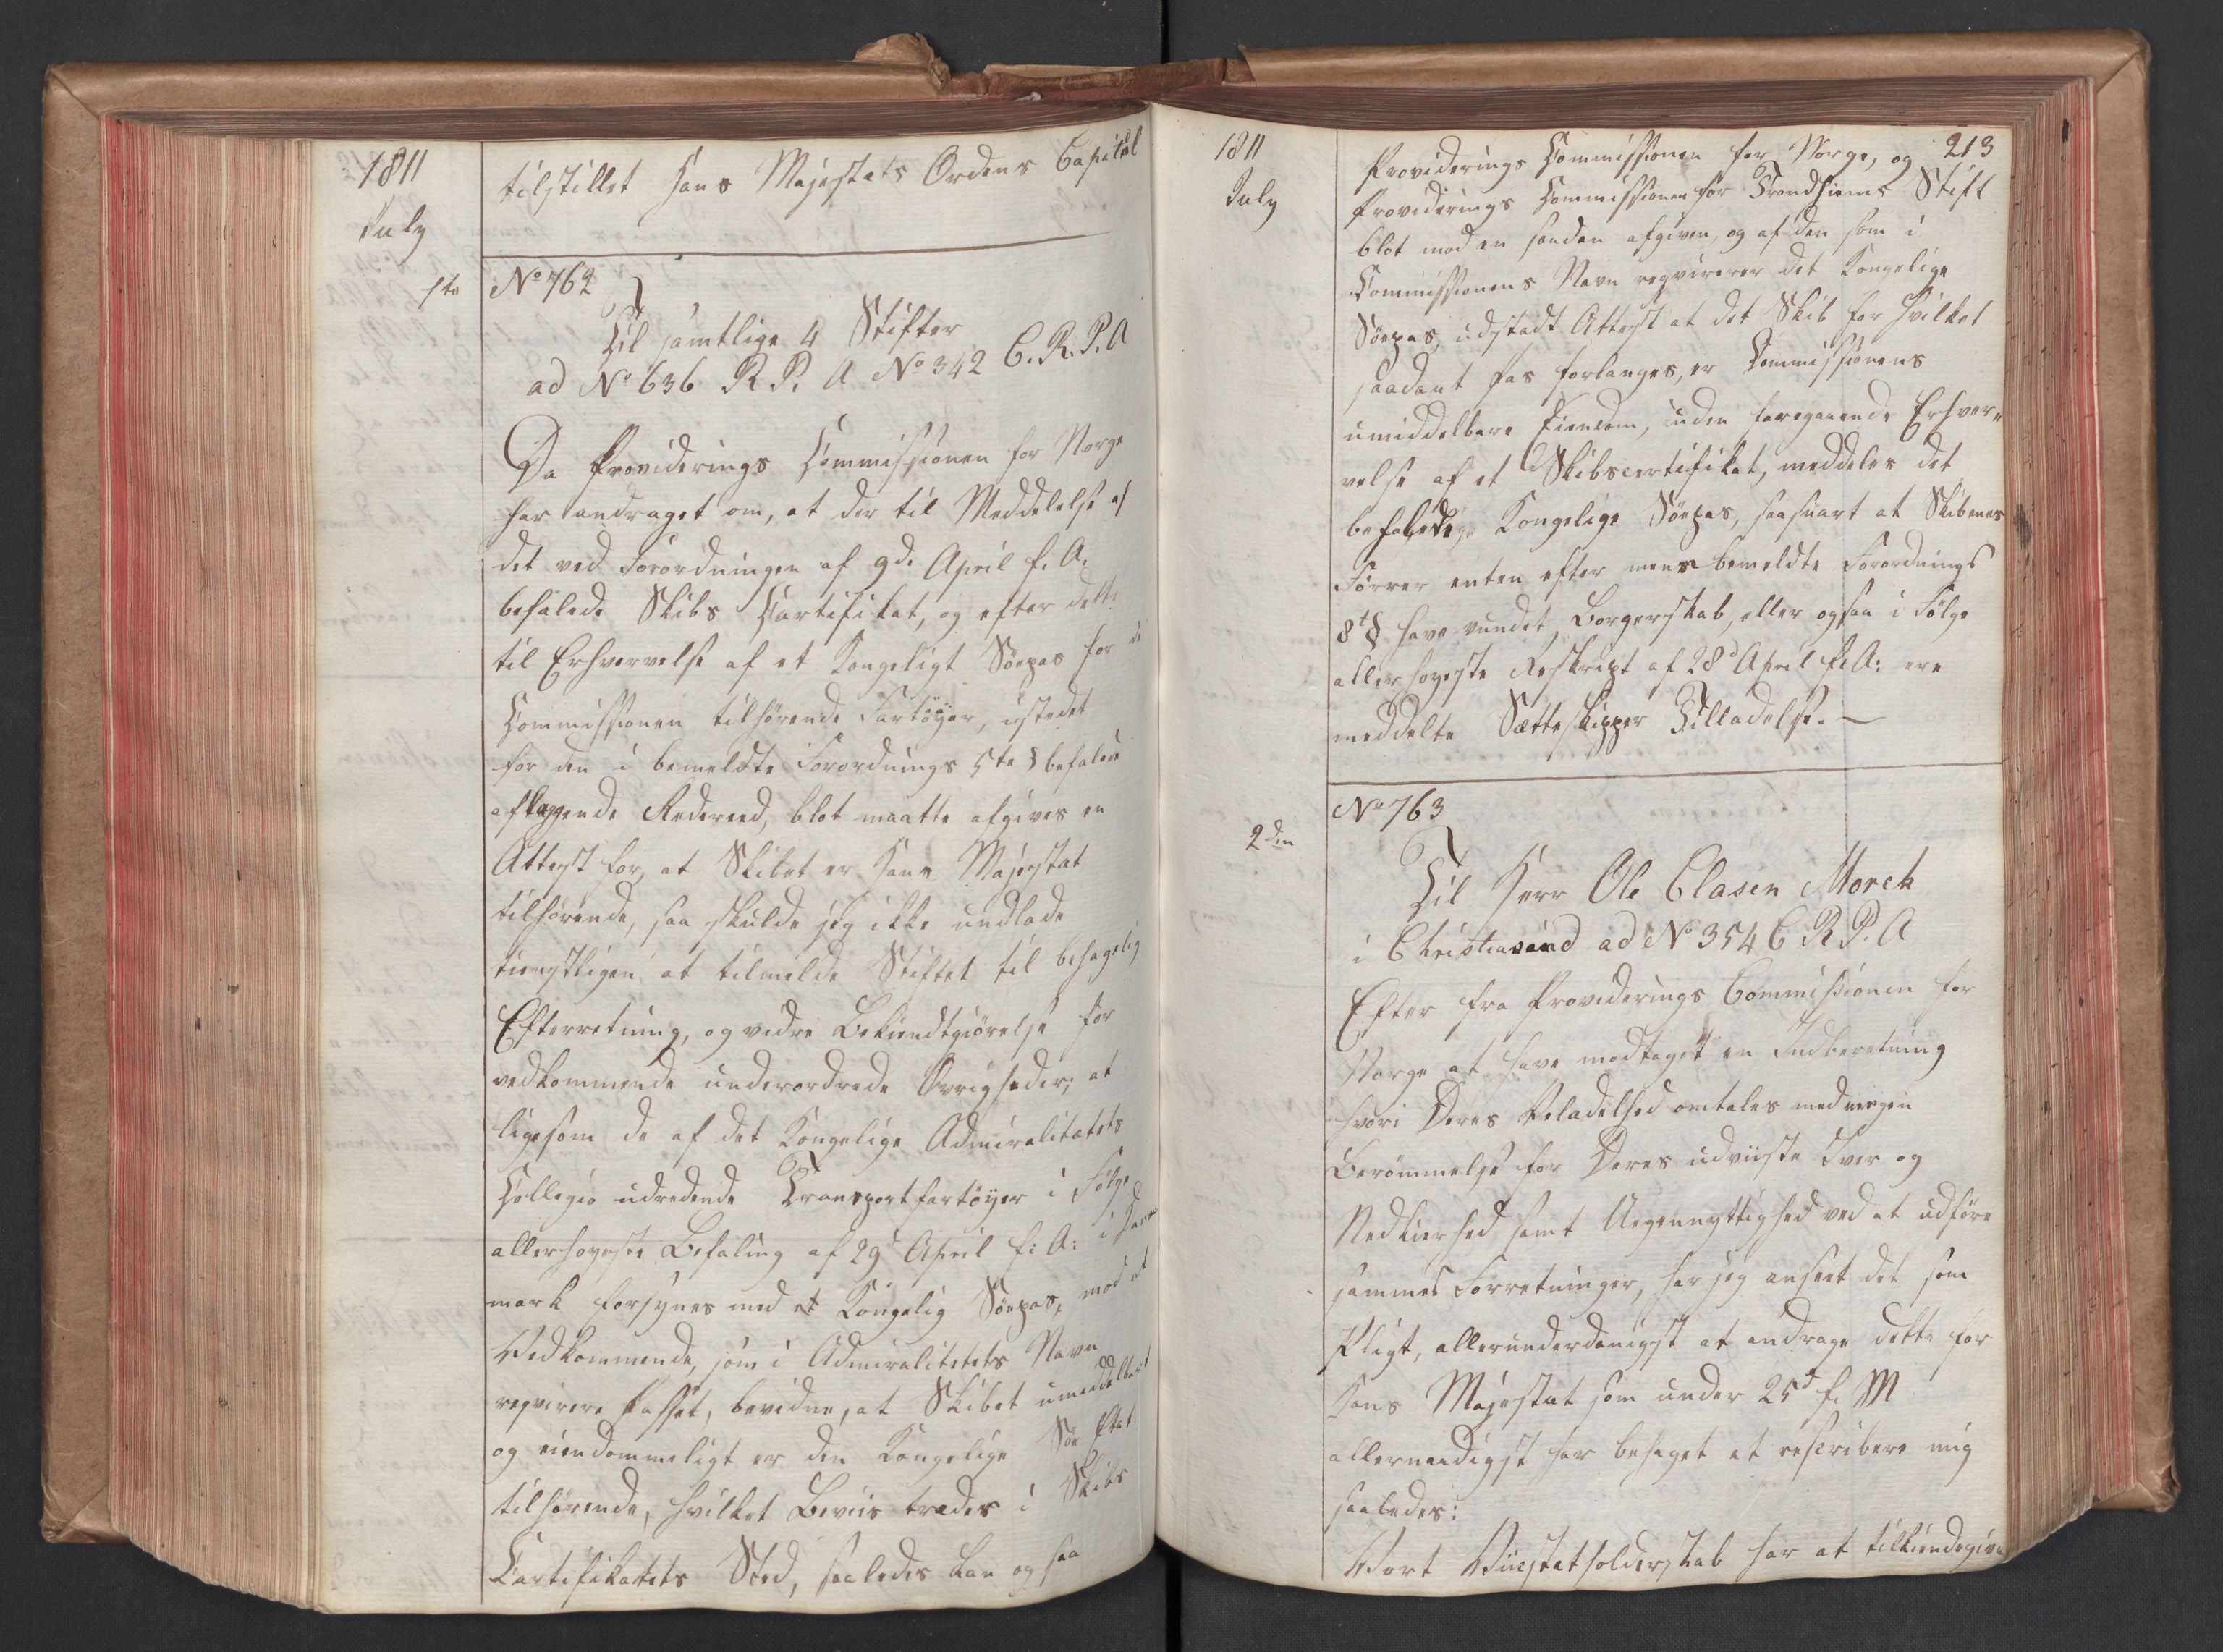 1811
July
tilstillet Hans Majestæts Ordens Capitel
1te
No 762
Til samtlige 4 Stifter
ad No 636 R. P. A No 342 C. R. P. A
Da Providerings Commissionen for Norge
har andraget om, at der til Meddelelse af
det ved Forordningen af 9d. April f. A.
befalede Skibs Certifikat, og efter dette
til Erhvervelse af et Kongeligt Söepas for de
Commissionen tilhörende Fartöyer, istedet
for den i bemeldte Forordnings 5te § befalede
aflæggende Redereed, blot maatte afgives en
Attest for, at Skibet er Hans Majestæt
tilhörende, saa skulde jeg ikke undlade
tienstligen at tilmelde Stiftet til behagelig
Efterretning, og vidre Bekiendtgiörelse for
vedkommende underordnede Övrigheder, at
ligesom de af det Kongelige Admiralitætets
Collegio udredende Transportfartöyer i Fölge
allerhöyeste Befaling af 29d April f: A: i Dan
mark forsynes med et Kongelig Söepas, mod at
Vedkommende, som i Admiralitetets Navn
reqvirere Passet, bevidne, at Skibet umiddelbart
og eiendommeligt er den Kongelige Söe Etat
tilhörende, hvilket Beviis træder i Skibs
Certifikatets Sted, saaledes kan og saa
1811
July
213
Providerings Commissionen for Norge, og
Providerings Commissionen for Trondhiems Stift
blot mod en saadan afgiven, og af den som i
Commissionens Navn reqvirerer det Kongelige
Söepas, udstædt Attest at det Skib for hvilket
saadant Pas forlanges, er Commissionens
umiddelbare Eiendom, uden foregaaende Erhver-
velse af et Skibscertifikat, meddeles det
befalede Kongelige Söepas, saasnart at Skibenes
Förrer enten efter meer bemeldte Forordnings
8t § have vundet Borgerskab, eller ogsaa i Fölge
allerhöyeste Reskript af 28d April f. A: ere
meddelte Sætteskipper Tilladelse. —
2den
No 763
Til Herr Ole Clasen Morch
i Christiansand ad No 354 C R. P. A
Efter fra Providerings Commissionen for
Norge at have modtaget en Indberetning
hvori Deres Veladelhed omtales med megen
Berömmelse for Deres udviiste Iver og
Nedkierhed samt Uegennyttighed ved at udföre
sammes Forretninger, har jeg anseet det som
Pligt, allerunderdanigst at andrage dette for
Hans Majestæt som under 25d f. M
allernaadigst har behaget at rescribere mig
saaledes:
Vort Viicestatholderskab har at tilkiendegive